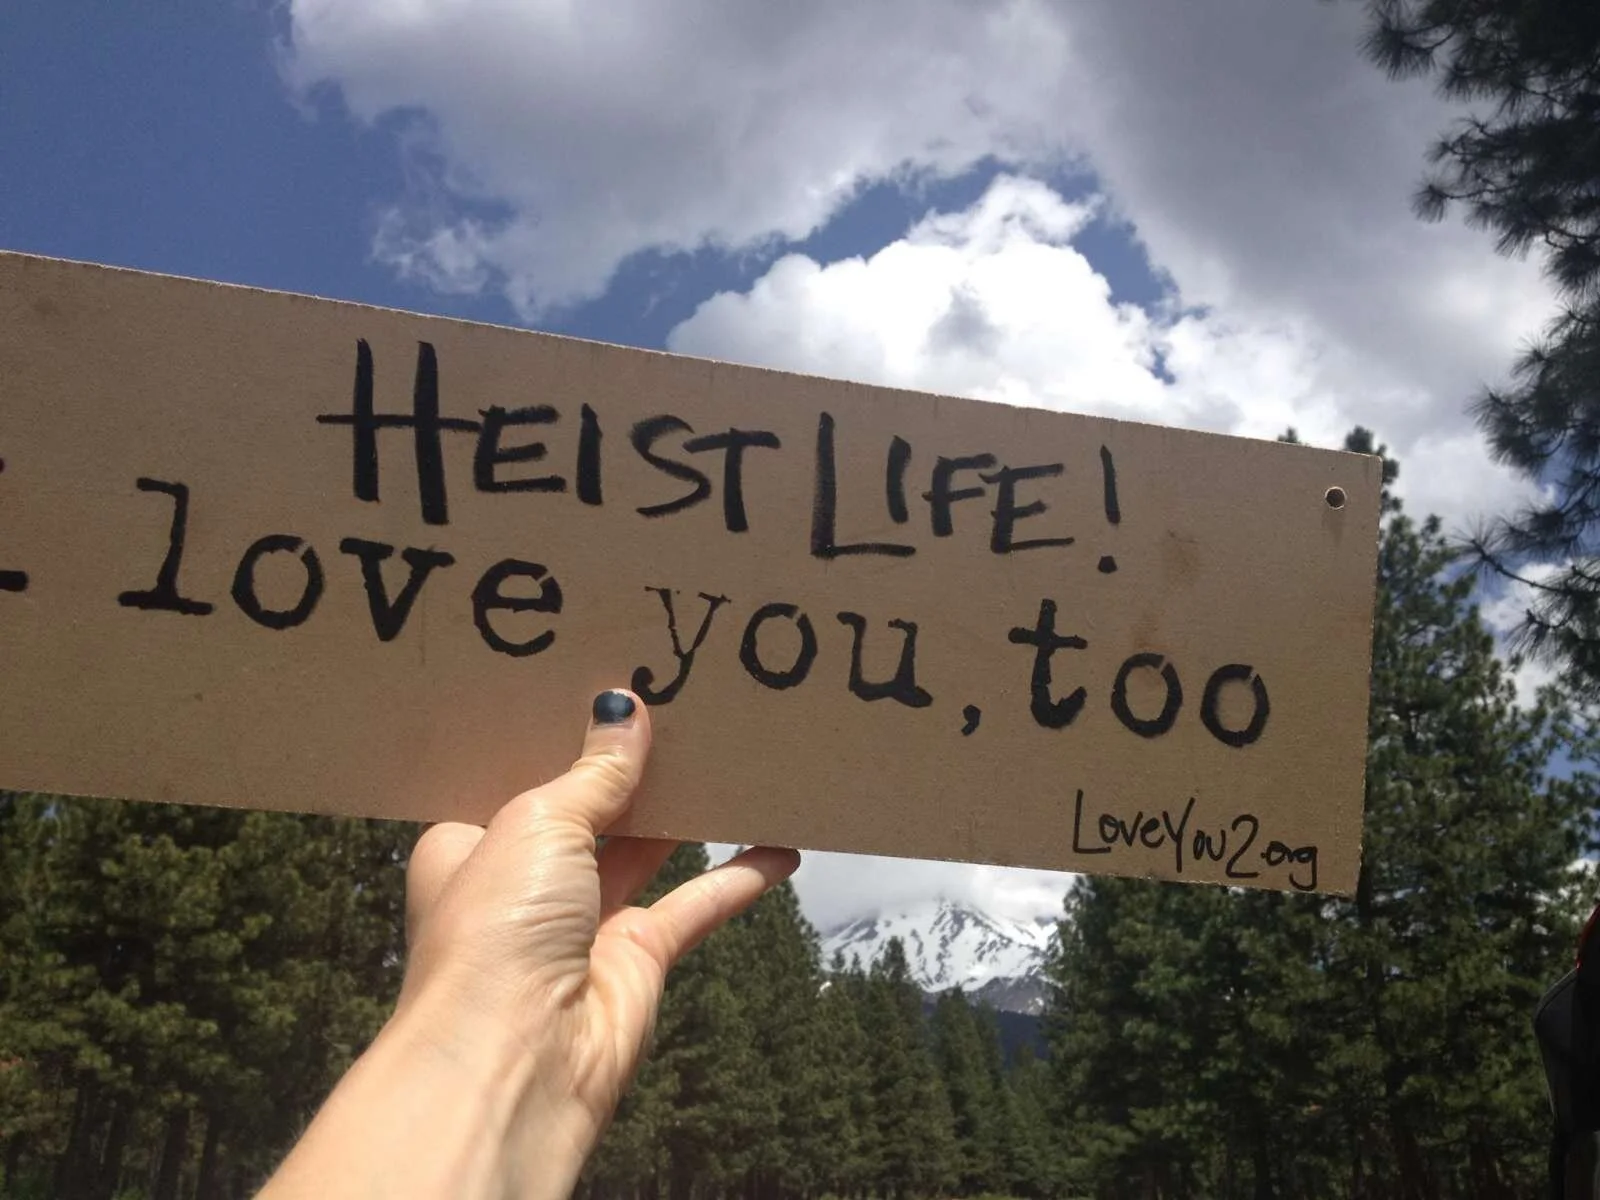 HEIST LIFE!
I love you, too
LoveYou2.org